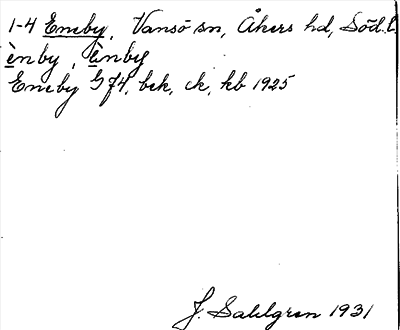 1-4 Emeby, Vansö sn, Åkers hd, Söd.l.
ènby, ènby
Emeby G74, bck, ck, kb 1925
J. Sahlgren 1931